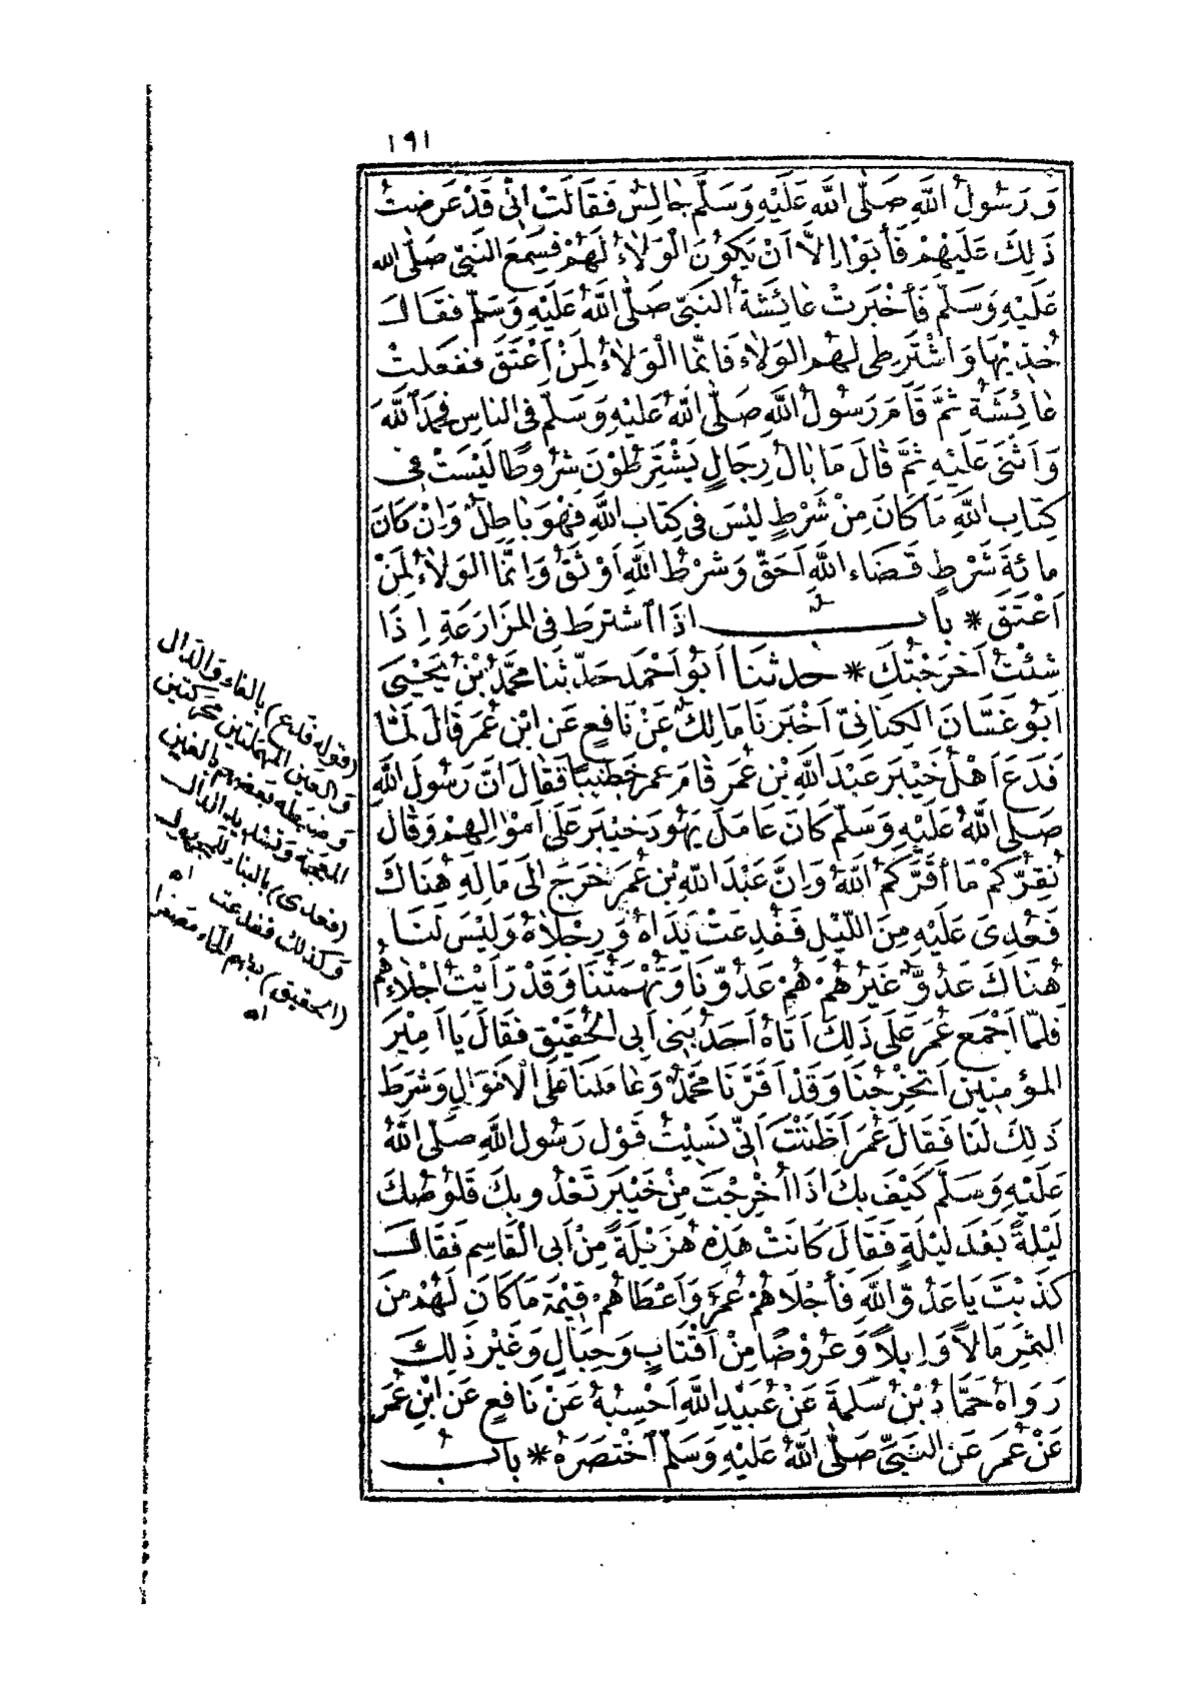 ١٩١
وَرَسُولُ اللّٰهِ صَلَّى اللّٰهُ عَلَيْهِ وَسَلَّمَ جَالِسٌ فَقَالَتْ اِنّٖى قَدْ عَرَضْتُ
ذٰلِكَ عَلَيْهِمْ فَأَبَوْا اِلَّا اَنْ يَكُونَ الْوَلَاءُ لَهُمْ فَسَمِعَ النَّبِىُّ صَلَّى اللّٰه
عَلَيْهِ وَسَلَّمَ فَأَخْبَرَتْ عَائِشَةُ النَّبِىَّ صَلَّى اللّٰهُ عَلَيْهِ وَسَلَّمَ فَقَالَ
خُذِيْهَا وَاشْتَرِطِى لَهُمُ الوَلَاءَ فَاِنَّمَا الْوَلَاءُ لِمَنْ اَعْتَقَ فَفَعَلَتْ
عَائِشَةُ ثُمَّ قَامَ رَسُولُ اللّٰهِ صَلَّى اللّٰهُ عَلَيْهِ وَسَلَّمَ فِى النَّاسِ فَحَمِدَ اللّٰهَ
وَاَثْنَى عَلَيْهِ ثُمَّ قَالَ مَا بَالُ رِجَالٍ يَشْتَرِطُوْنَ شُرُوطًا لَيْسَتْ فِى
كِتَابِ اللّٰهِ مَا كَانَ مِنْ شَرْطٍ لَيْسَ فِى كِتَابِ اللّٰهِ فَهُوَ بَاطِلٌ وَاِنْ كَانَ
مِائَةَ شَرْطٍ قَضَاءُ اللّٰهِ اَحَقُّ وَشَرْطُ اللّٰهِ اَوْثَقُ وَاِنَّمَا الوَلَاءُ لِمَنْ
اَعْتَقَ * بَابٌ اِذَا اشْتَرَطَ فِى المُزَارَعَةِ اِذَا
شِئْتُ اَخْرَجْتُكَ * حَدَّثَنَا اَبُو اَحْمَدَ حَدَّثَنَا مُحَمَّدُ بْنُ يَحْيَىٰ
اَبُو غَسَّانَ الكِنَانِىُّ اَخْبَرَنَا مَالِكٌ عَنْ نَافِعٍ عَنِ ابْنِ عُمَرَ قَالَ لَمَّا
فَدَعَ اَهْلُ خَيْبَرَ عَبْدَ اللّٰهِ بْنَ عُمَرَ قَامَ عُمَرُ خَطِيْبًا فَقَالَ اِنَّ رَسُولَ اللّٰهِ
صَلَّى اللّٰهُ عَلَيْهِ وَسَلَّمَ كَانَ عَامَلَ يَهُودَ خَيْبَرَ عَلَى اَمْوَالِهِمْ وَقَالَ
نُقِرُّكُمْ مَا أَقَرَّكُمُ اللّٰهُ وَاِنَّ عَبْدَ اللّٰهِ بْنَ عُمَرَ خَرَجَ اِلَى مَالِهِ هُنَاكَ
فَعُدِىَ عَلَيْهِ مِنَ اللَّيْلِ فَفُدِعَتْ يَدَاهُ وَرِجْلَاهُ وَلَيْسَ لَنَا
هُنَاكَ عَدُوٌّ غَيْرُهُمْ هُمْ عَدُوُّنَا وَتُهْمَتُنَا وَقَدْ رَاَيْتُ اِجْلَاءَهُمْ
فَلَمَّا اَجْمَعَ عُمَرُ عَلَى ذٰلِكَ اَتَاهُ اَحَدُ بَنِى اَبِى الْحُقَيْقِ فَقَالَ يَا اَمِيْرَ
المُؤْمِنِيْنَ اَتُخْرِجُنَا وَقَدْ اَقَرَّنَا مُحَمَّدٌ وَعَامَلَنَا عَلَى الْاَمْوَالِ وَشَرَطَ
ذٰلِكَ لَنَا فَقَالَ عُمَرُ اَظَنَنْتَ اَنِّى نَسِيْتُ قَوْلَ رَسُولِ اللّٰهِ صَلَّى اللّٰهُ
عَلَيْهِ وَسَلَّمَ كَيْفَ بِكَ اِذَا اُخْرِجْتَ مِنْ خَيْبَرَ تَعْدُو بِكَ قَلُوْصُكَ
لَيْلَةً بَعْدَ لَيْلَةٍ فَقَالَ كَانَتْ هٰذِهِ هُزَيْلَةً مِنْ اَبِى الْقَاسِمِ فَقَالَ
كَذَبْتَ يَا عَدُوَّ اللّٰهِ فَأَجْلَاهُمْ عُمَرُ وَاَعْطَاهُمْ قِيْمَةَ مَا كَانَ لَهُمْ مِنَ
الثَّمَرِ مَالًا وَاِبِلًا وَعُرُوْضًا مِنْ اَقْتَابٍ وَحِبَالٍ وَغَيْرِ ذٰلِكَ
رَوَاهُ حَمَّادُ بْنُ سَلَمَةَ عَنْ عُبَيْدِ اللّٰهِ اَحْسِبُهُ عَنْ نَافِعٍ عَنِ ابْنِ عُمَرَ
عَنْ عُمَرَ عَنِ النَّبِىِّ صَلَّى اللّٰهُ عَلَيْهِ وَسَلَّمَ اخْتَصَرَهُ * بَابُ
(قوله فدع) بالفاء والدال
والعين المهملتين محركتين
وضبطه بعضهم بالغين
المعجمة وتشديد الدال
(فعدى) بالبناء للمجهول
وكذلك ففدعت اه
(الحقيق) بضم الحاء مصغرا
اه